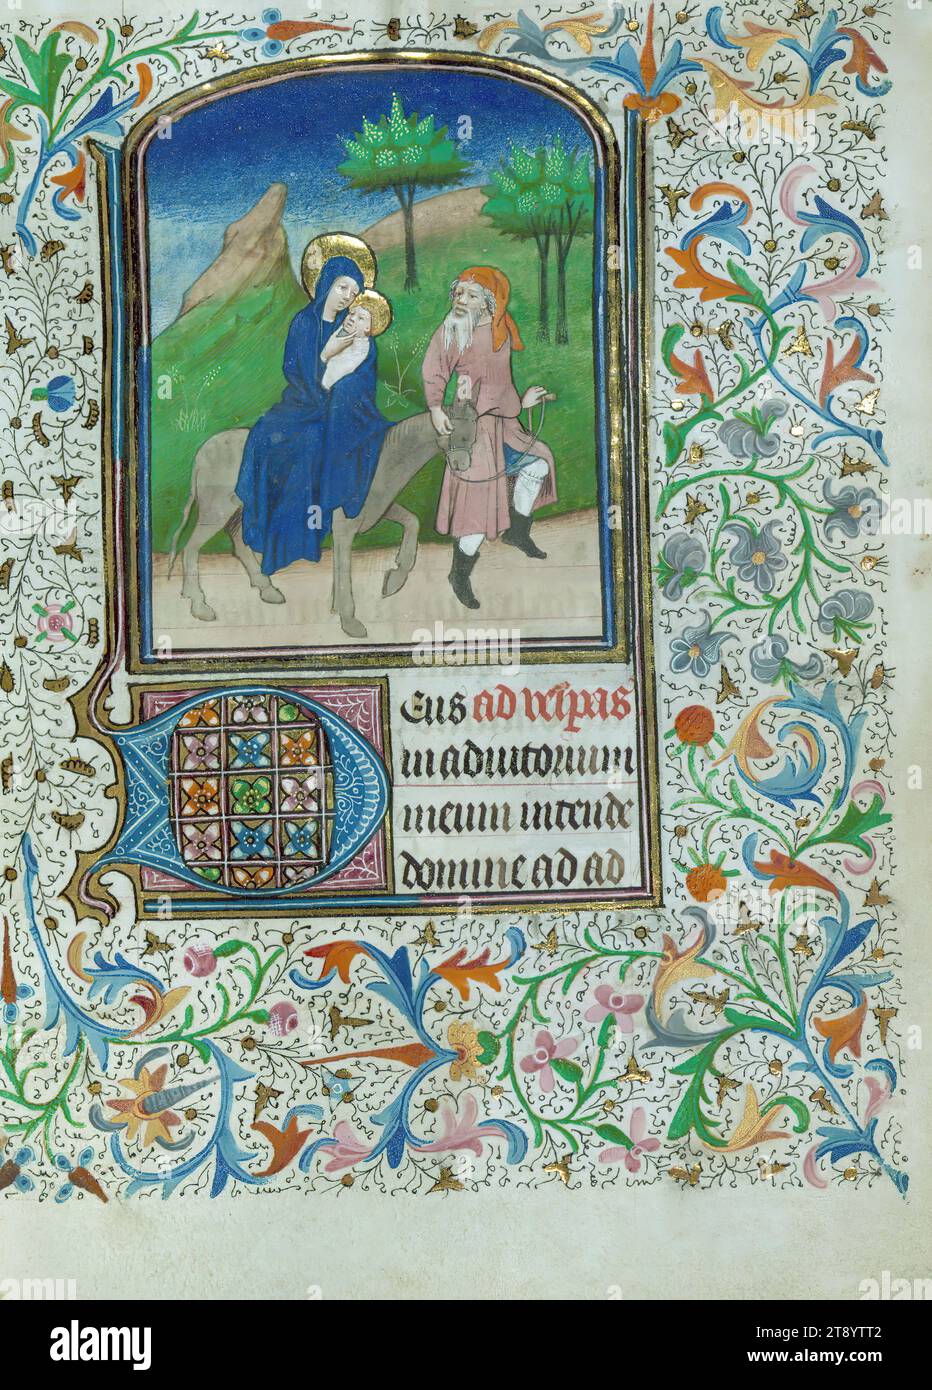 Deus ad vesperas
in adiutorium
meum intende
domine ad ad
alamy
Image ID: 2T8YTT2
www.alamy.com